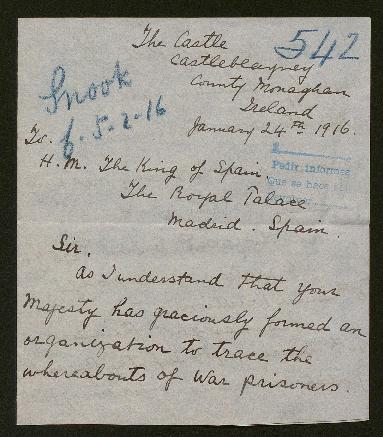 The Castle
542
Castleblayney
County Monaghan
Ireland
Snook
6. 5-2-16
January 24th 1916.
To.
H. M. The King of Spain
The Royal Palace
Madrid. Spain.
Pedir informes
Que se hace
Sir,
As I understand that your
Majesty has graciously formed an
organization to trace the
whereabouts of war prisoners.